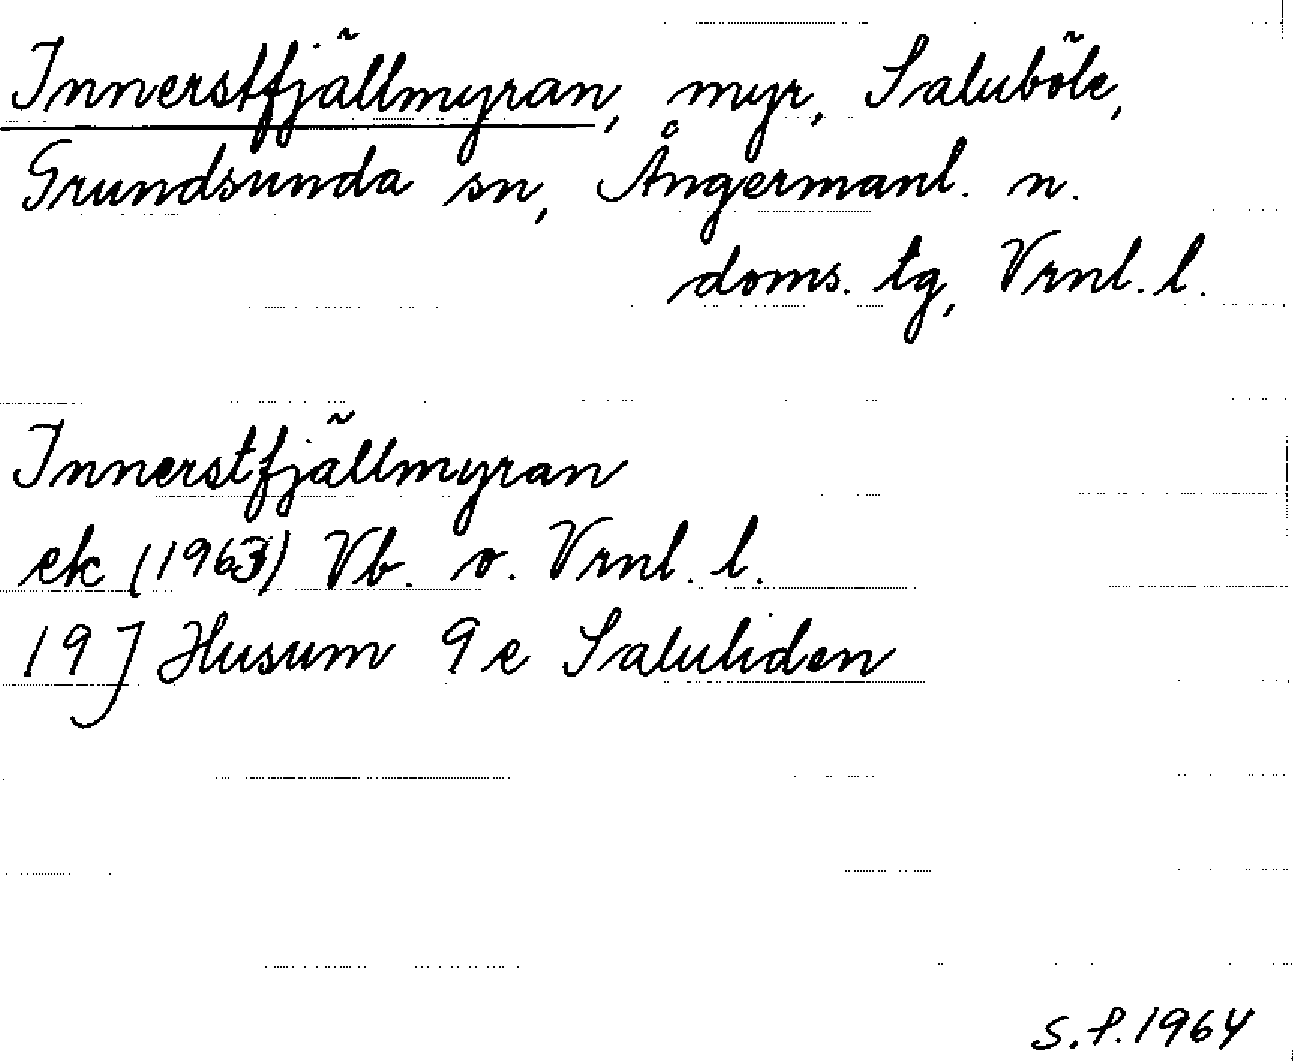 Innerstfjällmyran, myr, Saluböle,
Grundsunda sn, Ångermanl. n.
doms. tg, Vrnl. l.
Innerstfjällmyran
ek (1963) Vb. o. Vrnl. l.
19 J Husum 9 e Saluliden
S.P. 1964